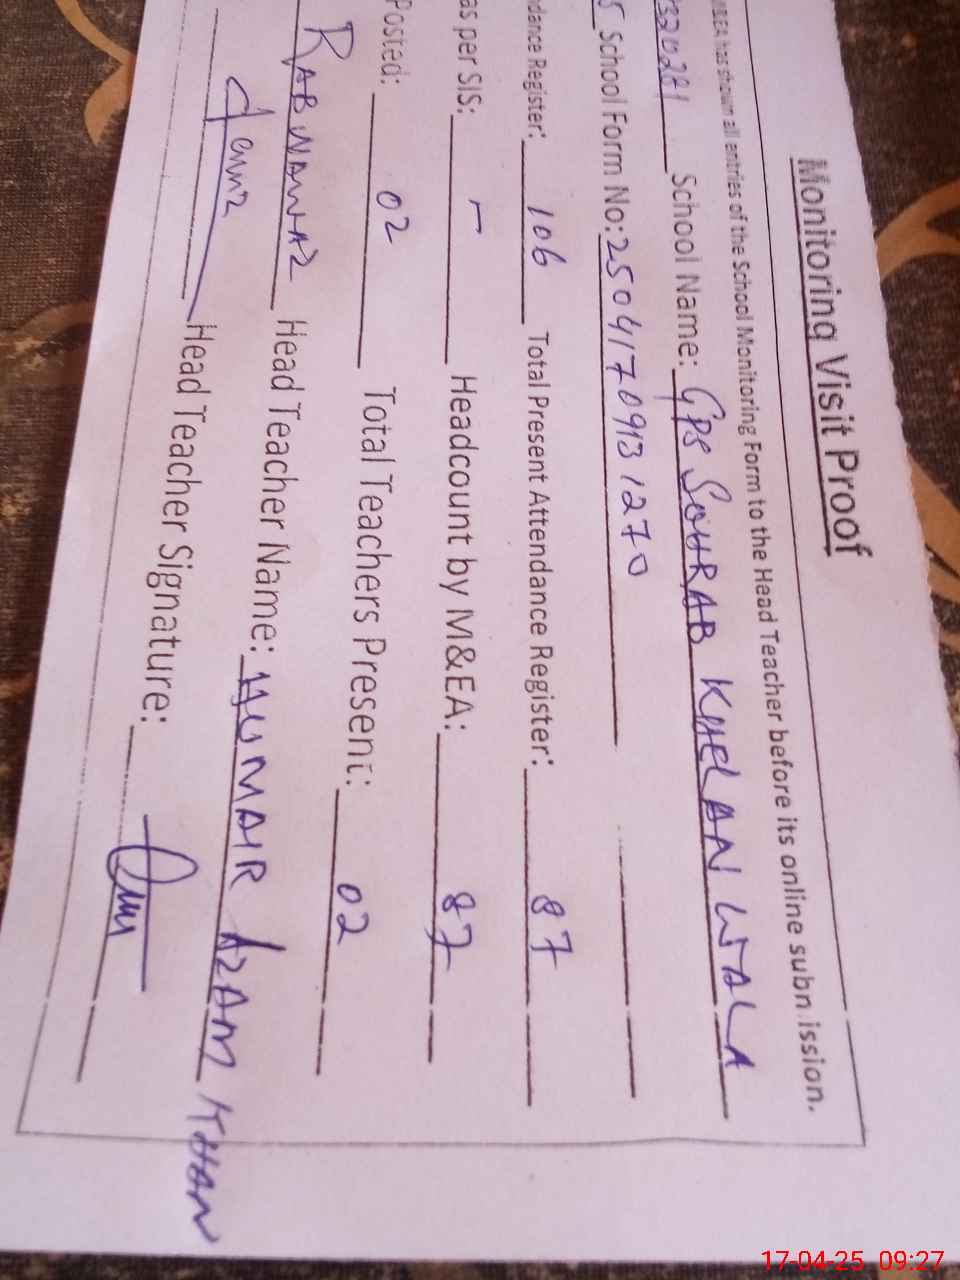 Monitoring Visit Proof
has shown all entries of the School Monitoring Form to the Head Teacher before its online submission.
320281 School Name: GPS SOHRAB KHELAN WALA
School Form No: 25041709131270
dance Register: 106 Total Present Attendance Register: 87
as per SIS: – Headcount by M&EA: 87
Posted: 02 Total Teachers Present: 02
RAB NAWAZ Head Teacher Name: HUMAIR AZAM KHAN
Head Teacher Signature:
17-04-25 09:27